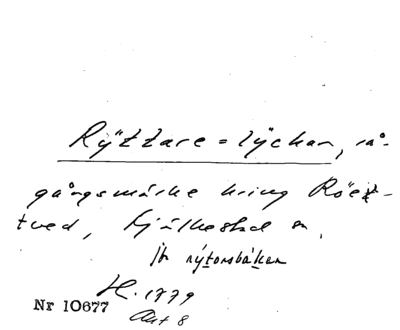 Rÿttare=lÿckan, rå-
gångsmärke kring Röe-
tved, Fjälkestad sn.
jfr rýtarabákan
H. 1779
Akt 8
Nr 10677